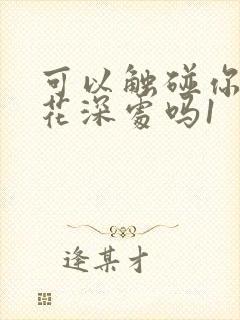 可以触碰你
花深处吗1
逢某才